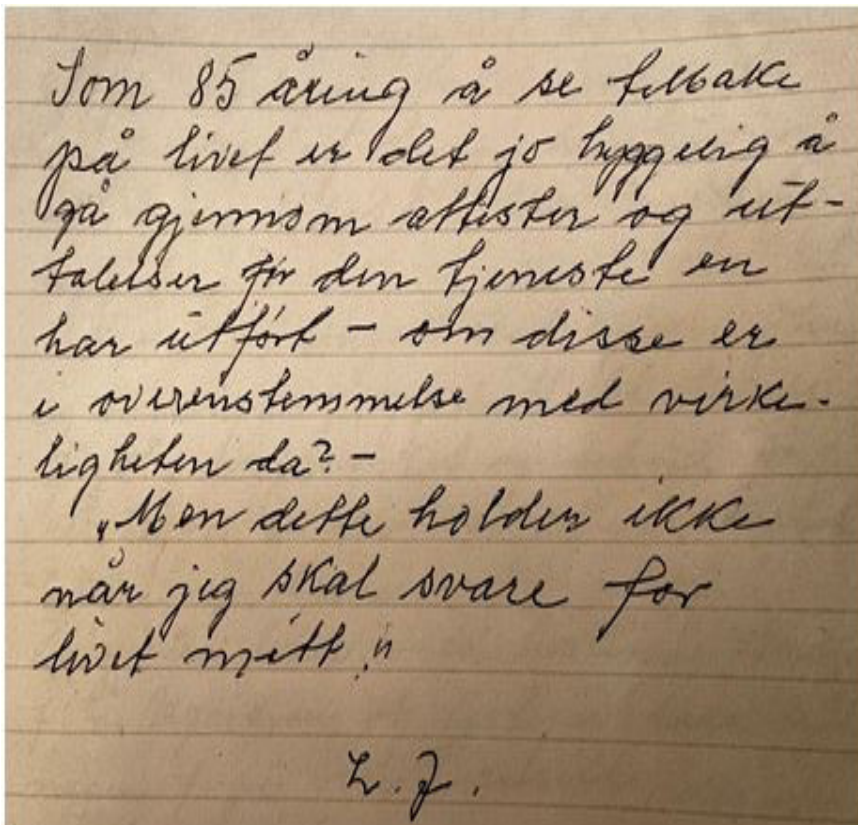 Som 85 åring å se tilbake
på livet er det jo hyggelig å
gå gjennom attester og ut-
talelser for den tjeneste en
har utført - om disse er
i overenstemmelse med virke-
ligheten da? -
„Men dette holder ikke
når jeg skal svare for
livet mitt."
L. J.